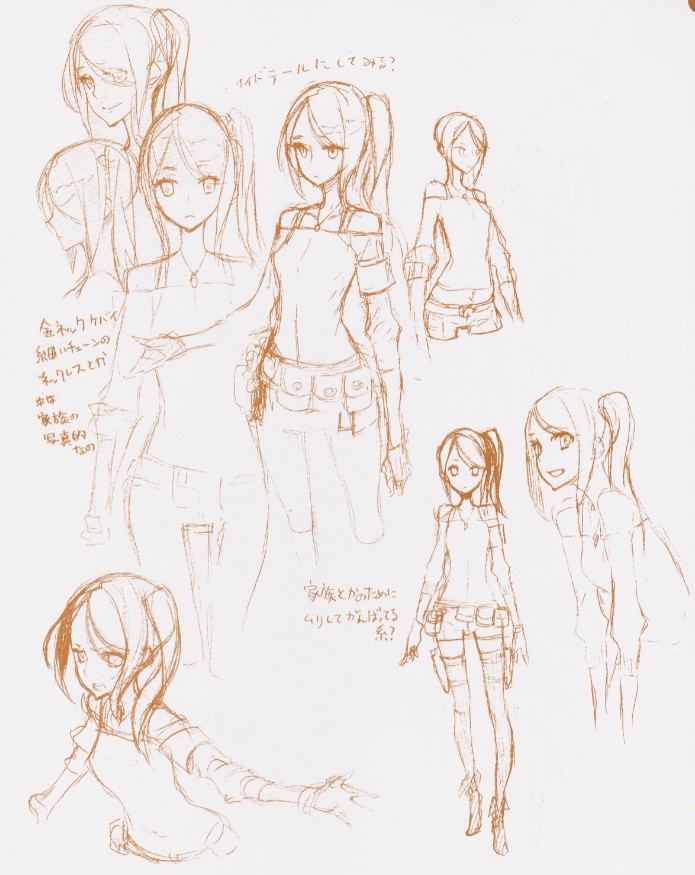 サイドテールにしてみる?
金ネックケバイ
細いチェーンの
ネックレスとか
中は
家族の
写真的
なの
家族とかのために
ムリしてがんばってる
系?